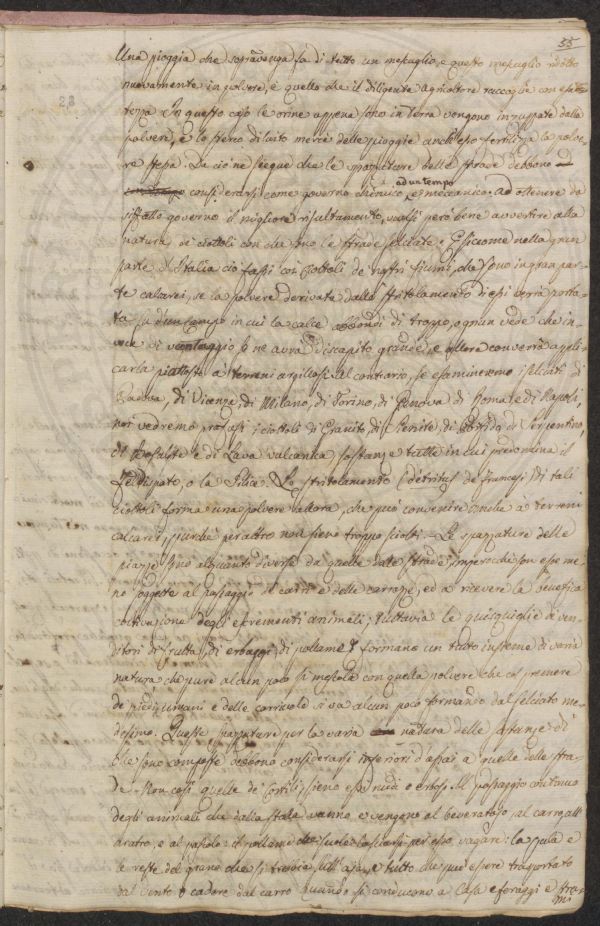 35
Una pioggia che sopravenga fa di tutto un mescuglio, e questo mescuglio ridotto
nuovamente in polvere, è quello che il diligente agricoltore raccoglie con esat-
tezza. In questo caso le orine appena sono in terra vengono inzuppate dalla
23
polvere, e lo sterco diluito mercè delle pioggie anch'esso fertilizza la polve-
re stessa. Da ciò ne siegue che le spazzature delle strade debbono
considerarsi come governo chimico, ad un tempo e meccanico. Ad ottenere da
siffatto governo il migliore risultamento, vuolsi però bene avvertire alla
natura de' ciottoli con che sono le strade selciate. E siccome nella gran
parte d'Italia ciò fassi coi Ciottoli de' nostri fiumi, che sono in gran par-
te calcarei, se la polvere derivata dallo stritolamento di essi verrà porta-
ta in un campo in cui la calce abbondi di troppo, ognun vede che in-
vece di vantaggio se ne avrà discapito grande, e allora converrà appli-
carla piuttosto a terreni argillosi. Al contrario, se esamineremo i selciati di
Padova, di Vicenza, di Milano, di Torino, di Genova di Roma e di Napoli,
noi vedremo presso i ciottoli di Granito, di Sienite, di Porfido, di Serpentino,
di Basalte e di Lava vulcanica, sostanze tutte in cui predomina il
Feldispato, o la Silice. Lo stritolamento (détritus de' francesi) di tali
ciottoli forma una polvere allora, che può convenire anche a' terreni
calcarei, purchè per altro non sieno troppo sciolti. Le spazzature delle
piazze sono alquanto diverse da quelle delle strade, imperocchè son esse me-
no soggette al passaggio de' carri e delle carrozze, ed a ricevere la benefica
coltivazione degli escrementi animali; tuttavia le quisquiglie de' ven-
ditori di frutta, di erbaggi, di pollame formano un tutto insieme di varia
natura che pure alcun poco si mescola con quella polvere che col premere
de' piedi umani e delle carriuole si va alcun poco formando dal selciato me-
desimo. Queste spazzature per la varia natura delle sostanze di
che sono composte debbono considerarsi inferiori d'assai a quelle delle stra-
de. Non così quelle de' Cortili, sieno essi nudi o erbosi. Il passaggio continuo
degli animali che dalla stalla vanno e vengono al beveratojo, al carro, all'
aratro, e al pascolo: il pollame che suole lasciarsi per esso vagare: la pula e
le reste del grano che si trebbia sull'aja, e tutto che può essere trasportato
dal vento o cadere dal carro quando si conducono a Casa e foraggi e stra-
mi